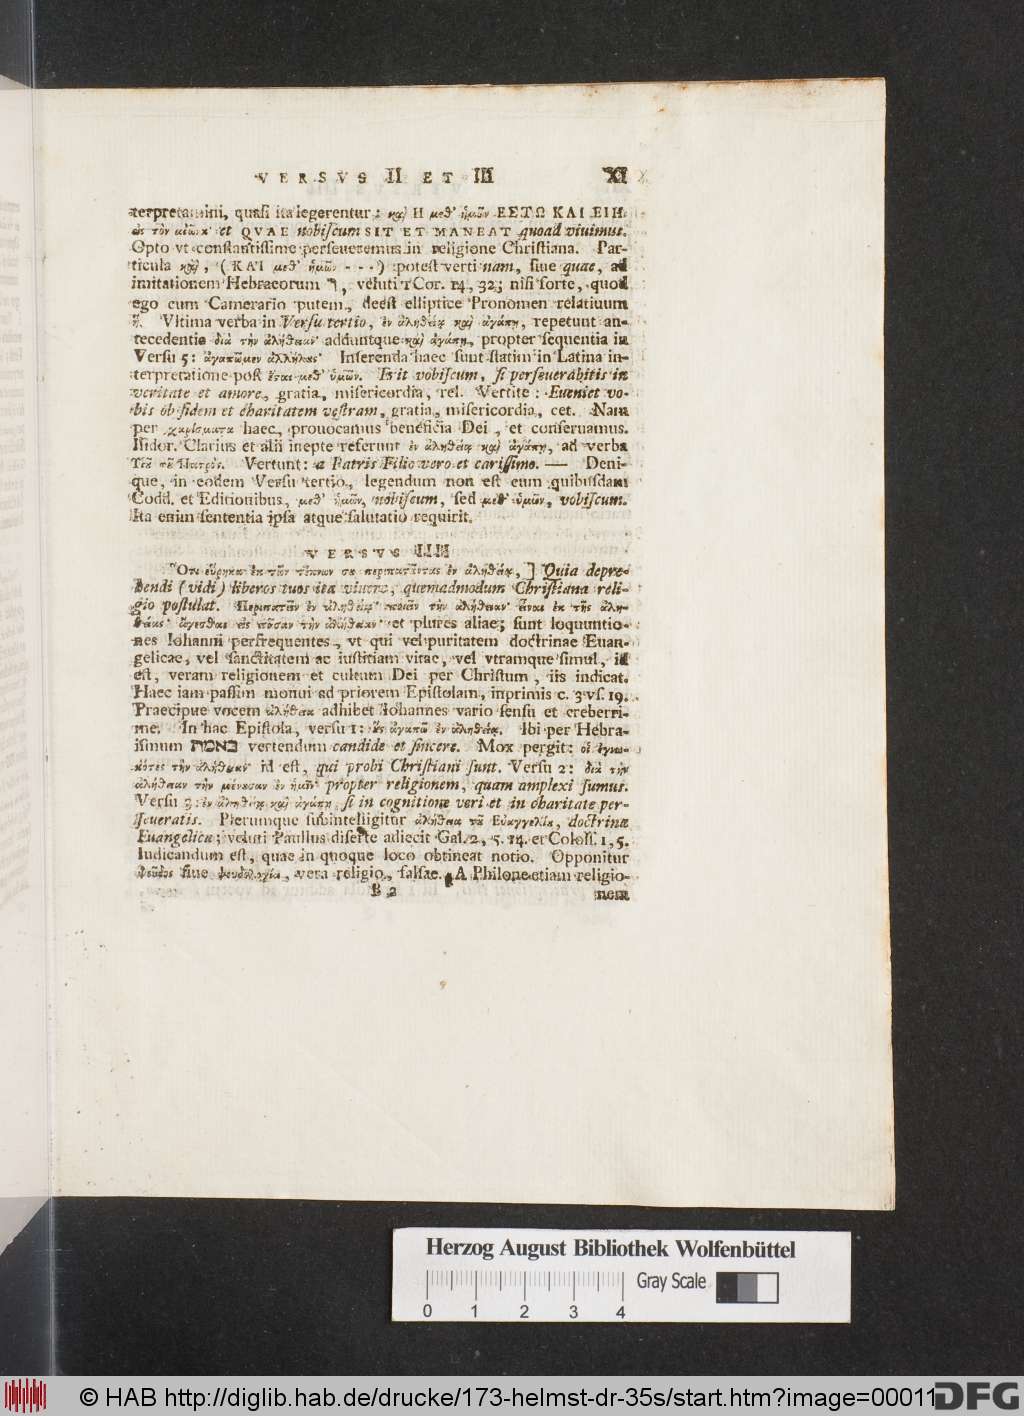 VERSVS II ET III XI
terpretamini, quasi ita legerentur: καὶ Η μεθ' ἡμῶν ΕΣΤΩ ΚΑΙ ΕΙΗ
εἰς τὸν αἰῶνα· et QVAE nobiscum SIT ET MANEAT quoad viuimus.
Opto vt constantissime perseueremus in religione Christiana. Par-
ticula καὶ, (ΚΑΙ μεθ' ἡμῶν - - -) potest verti nam, siue quae, ad
imitationem Hebraeorum ו, veluti 1 Cor. 14, 32; nisi forte, quod
ego cum Camerario putem, deest elliptice Pronomen relatiuum
ἥ. Vltima verba in Versu tertio, ἐν ἀληθείᾳ καὶ ἀγάπῃ, repetunt an-
tecedentia διὰ τὴν ἀλήθειαν adduntque καὶ ἀγάπῃ, propter sequentia in
Versu 5: ἀγαπῶμεν ἀλλήλους· Inserenda haec sunt statim in Latina in-
terpretatione post ἔσται μεθ' ὑμῶν. Erit vobiscum, si perseuerabitis in
veritate et amore, gratia, misericordia, rel. Vertite: Eueniet vo-
bis ob fidem et charitatem vestram, gratia, misericordia, cet. Nam
per χαρίσματα haec, prouocamus beneficia Dei, et conseruamus.
Isidor. Clarius et alii inepte referunt ἐν ἀληθείᾳ καὶ ἀγάπῃ, ad verba
Υἱοῦ τοῦ Πατρός. Vertunt: a Patris Filio vero et carissimo. — Deni-
que, in eodem Versu tertio, legendum non est cum quibusdam
Codd. et Editionibus, μεθ' ἡμῶν, nobiscum, sed μεθ' ὑμῶν, vobiscum.
Ita enim sententia ipsa atque salutatio requirit.
VERSVS IIII
Ὅτι εὕρηκα ἐκ τῶν τέκνων σου περιπατοῦντας ἐν ἀληθείᾳ,] Quia depre-
hendi (vidi) liberos tuos ita viuere, quemadmodum Christiana reli-
gio postulat. Περιπατεῖν ἐν ἀληθείᾳ· ποιεῖν τὴν ἀλήθειαν· εἶναι ἐκ τῆς ἀλη-
θείας· ὁδηγεῖσθαι εἰς πᾶσαν τὴν ἀλήθειαν· et plures aliae; sunt loquutio-
nes Iohanni perfrequentes, vt qui vel puritatem doctrinae Euan-
gelicae, vel sanctitatem ac iustitiam vitae, vel vtramque simul, id
est, veram religionem et cultum Dei per Christum, iis indicat.
Haec iam passim monui ad priorem Epistolam, inprimis c. 3 vs. 19.
Praecipue vocem ἀλήθεια adhibet Iohannes vario sensu et creberri-
me. In hac Epistola, versu 1: οὓς ἀγαπῶ ἐν ἀληθείᾳ. Ibi per Hebra-
ismum באמת vertendum candide et sincere. Mox pergit: οἱ ἐγνω-
κότες τὴν ἀλήθειαν· id est, qui probi Christiani sunt. Versu 2: διὰ τὴν
ἀλήθειαν τὴν μένουσαν ἐν ἡμῖν· propter religionem, quam amplexi sumus.
Versu 3: ἐν ἀληθείᾳ καὶ ἀγάπῃ, si in cognitione veri et in charitate per-
seueratis. Plerumque subintelligitur ἀλήθεια τοῦ Εὐαγγελίου, doctrinae
Euangelicae; veluti Paullus diserte adiecit Gal. 2, 5. 14. et Coloss. 1, 5.
Iudicandum est, quae in quoque loco obtineat notio. Opponitur
ψεῦδος siue ψευδολογία, vera religio, falsae. A Philone etiam religio-
B 2 nem
Herzog August Bibliothek Wolfenbüttel
Gray Scale
0 1 2 3 4
© HAB http://diglib.hab.de/drucke/173-helmst-dr-35s/start.htm?image=00011
DFG